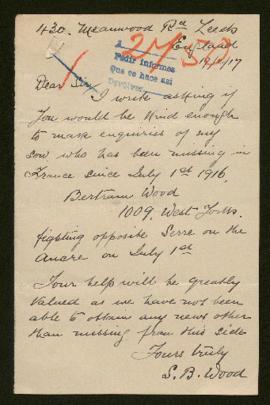 430. Meanwood Rd Leeds
England
Pedir informes
Que se hace así
Dear Sir
I write asking if
you would be kind enough
to make enquiries of my
son who has been missing in
France since July 1st 1916
Bertram Wood
1009. West Yorks.
fighting opposite Serre on the
Ancre on July 1st
Your help will be greatly
valued as we have not been
able to obtain any news other
than missing from this side
Yours truly
S. B. Wood